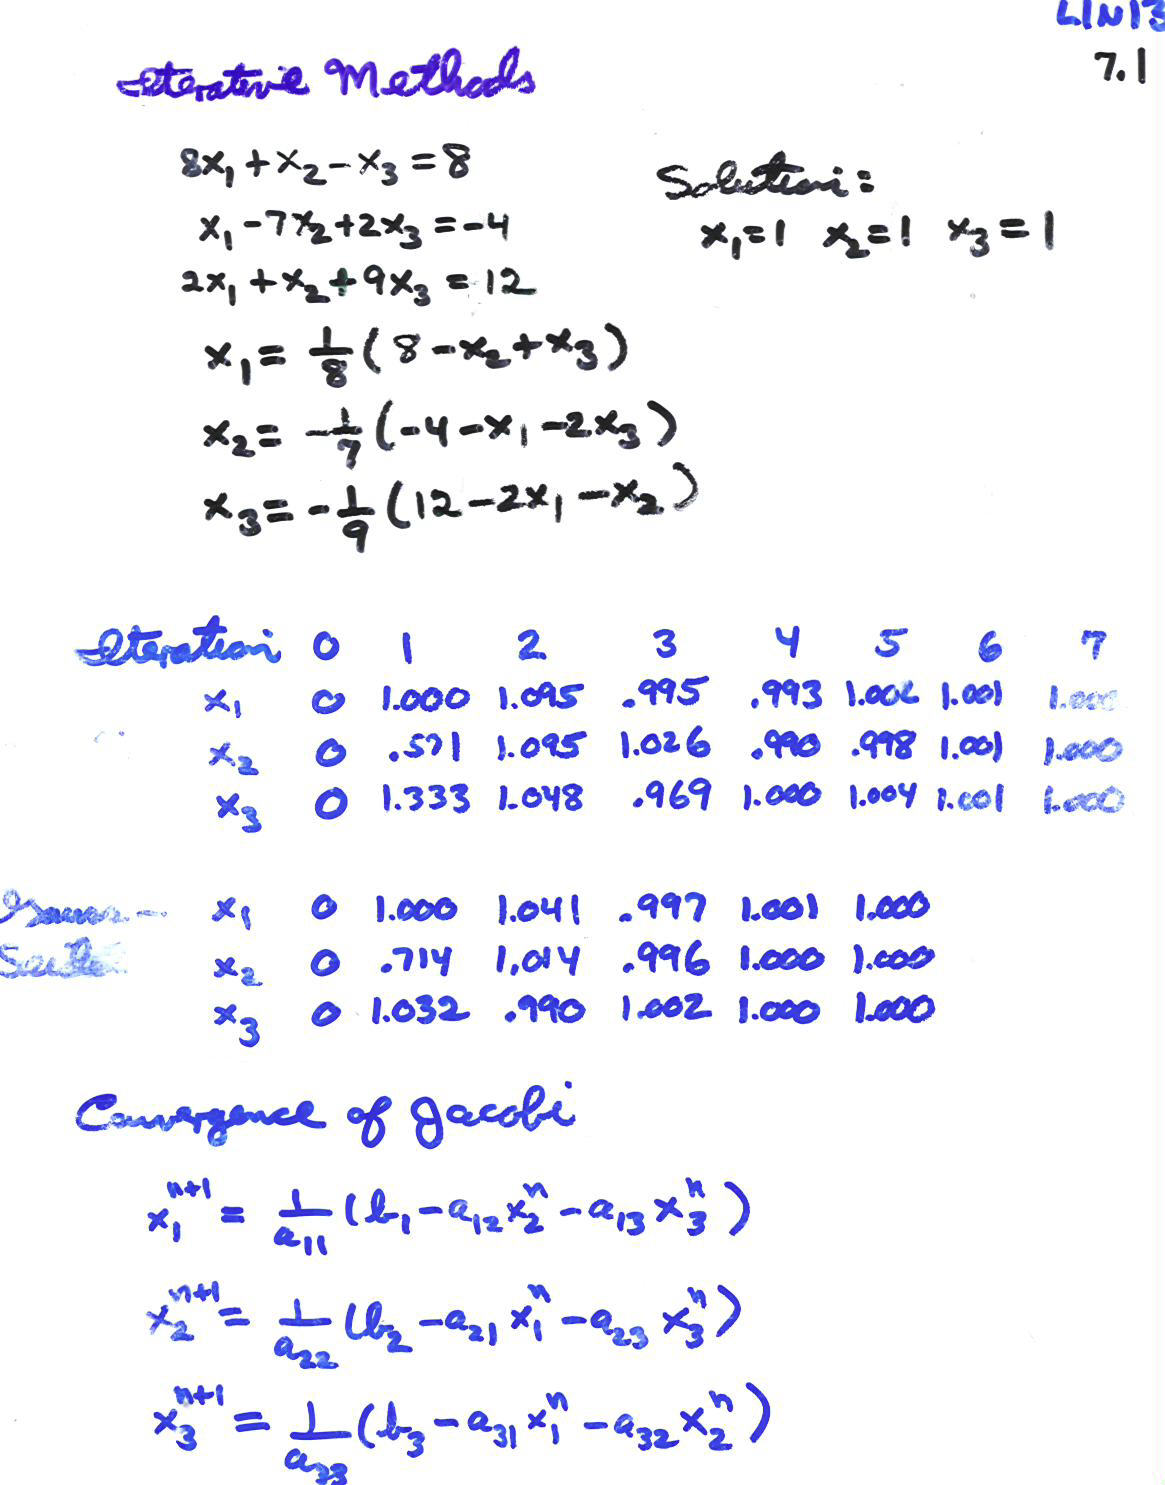 LIN13
7.1
Iterative Methods
8x₁ + x₂ - x₃ = 8
x₁ - 7x₂ + 2x₃ = -4
2x₁ + x₂ + 9x₃ = 12
Solution:
x₁ = 1 x₂ = 1 x₃ = 1
x₁ = 1/8 (8 - x₂ + x₃)
x₂ = -1/7 (-4 - x₁ - 2x₃)
x₃ = -1/9 (12 - 2x₁ - x₂)
Iteration 0 1 2 3 4 5 6 7
x₁ 0 1.000 1.095 .995 .993 1.002 1.001 1.000
x₂ 0 .571 1.095 1.026 .990 .998 1.001 1.000
x₃ 0 1.333 1.048 .969 1.000 1.004 1.001 1.000
Gauss-
Seidel
x₁ 0 1.000 1.041 .997 1.001 1.000
x₂ 0 .714 1.014 .996 1.000 1.000
x₃ 0 1.032 .990 1.002 1.000 1.000
Convergence of Jacobi
x₁ⁿ⁺¹ = 1/a₁₁ (b₁ - a₁₂ x₂ⁿ - a₁₃ x₃ⁿ)
x₂ⁿ⁺¹ = 1/a₂₂ (b₂ - a₂₁ x₁ⁿ - a₂₃ x₃ⁿ)
x₃ⁿ⁺¹ = 1/a₃₃ (b₃ - a₃₁ x₁ⁿ - a₃₂ x₂ⁿ)